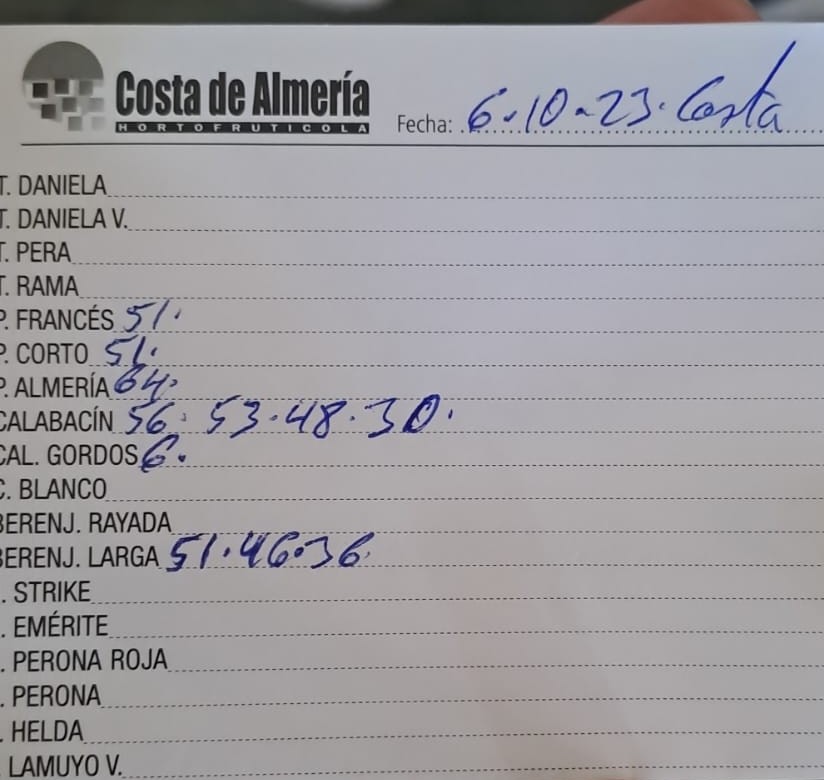 Costa de Almería
HORTOFRUTICOLA
Fecha: 6.10-23. Costa
T. DANIELA
T. DANIELA V.
T. PERA
T. RAMA
P. FRANCÉS 51.
P. CORTO 51.
P. ALMERÍA 64.
CALABACÍN 56. 53.48.30.
CAL. GORDOS 6.
C. BLANCO
BERENJ. RAYADA
BERENJ. LARGA 51.46.36
. STRIKE
. EMÉRITE
. PERONA ROJA
. PERONA
. HELDA
LAMUYO V.